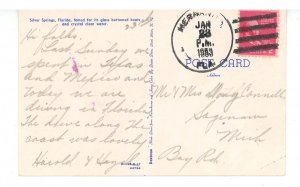 Silver Springs, Florida, famed for its glass bottomed boats
and crystal clear water.
Hi Folks,
Last Sunday we
spent in Texas
and Mexico and
Today we are
driving in Florida
The drive along the
coast was lovely
Harold &
JAN
23
P.M.
1953
FLA
POST CARD
Address
Mr & Mrs Doug Connell
Saginaw
Mich
Bay Rd